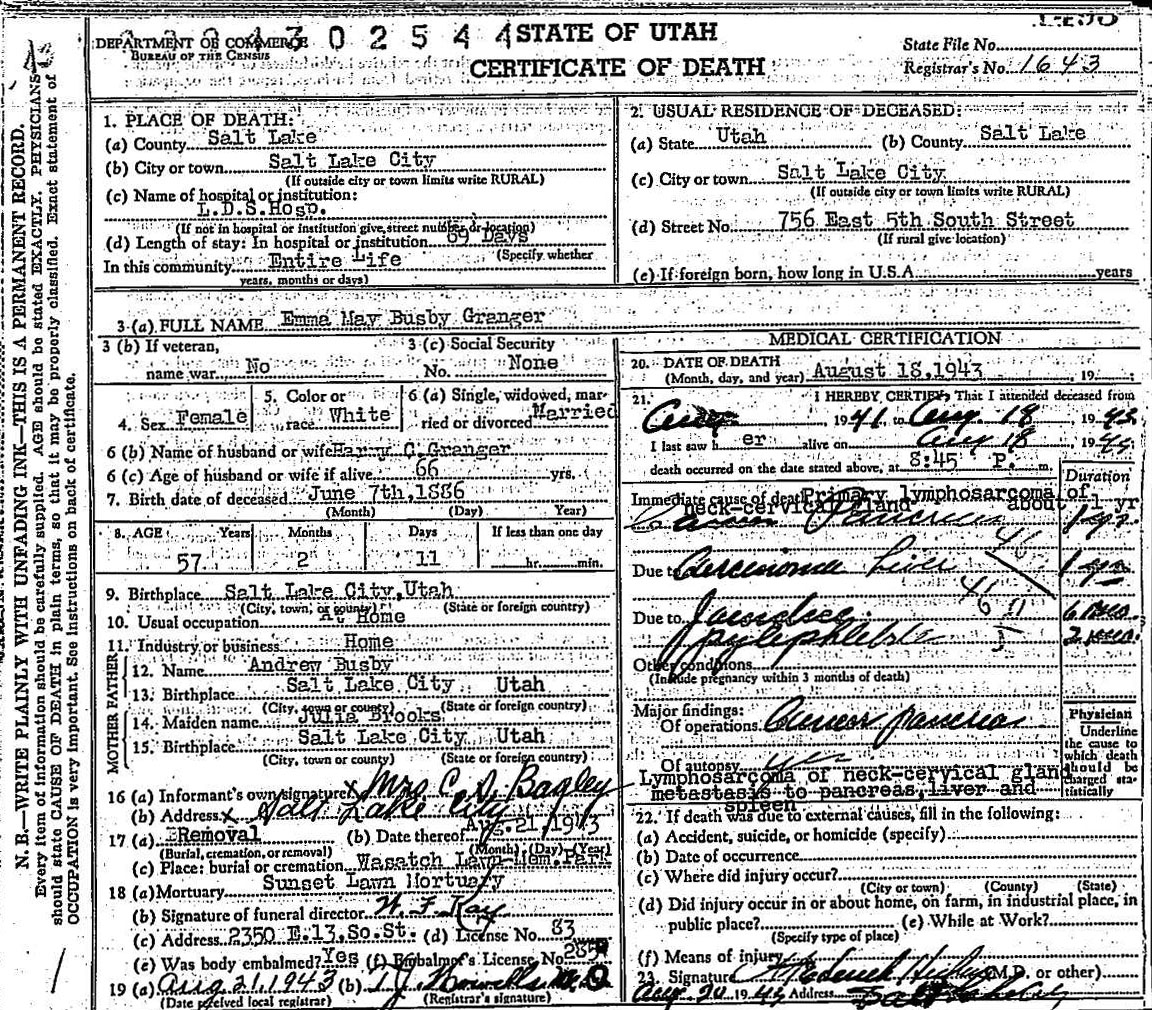 N. B.—WRITE PLAINLY WITH UNFADING INK—THIS IS A PERMANENT RECORD.
Every item of information should be carefully supplied. AGE should be stated EXACTLY. PHYSICIANS
should state CAUSE OF DEATH in plain terms, so that it may be properly classified. Exact statement of
OCCUPATION is very important. See instructions on back of certificate.
DEPARTMENT OF COMMERCE
BUREAU OF THE CENSUS
4 3 0 2 5 4 4
STATE OF UTAH
CERTIFICATE OF DEATH
State File No.
Registrar's No. 1643
1. PLACE OF DEATH:
(a) County Salt Lake
(b) City or town Salt Lake City
(If outside city or town limits write RURAL)
(c) Name of hospital or institution:
L.D.S.Hosp.
(If not in hospital or institution give street number or location)
(d) Length of stay: In hospital or institution 69 Days
(Specify whether
In this community Entire Life
years, months or days)
2. USUAL RESIDENCE OF DECEASED:
(a) State Utah (b) County Salt Lake
(c) City or town Salt Lake City
(If outside city or town limits write RURAL)
(d) Street No. 756 East 5th South Street
(If rural give location)
(e) If foreign born, how long in U.S.A. years
3 (a) FULL NAME Emma May Busby Granger
3 (b) If veteran,
name war No
3 (c) Social Security
No. None
4. Sex Female
5. Color or
race White
6 (a) Single, widowed, mar-
ried or divorced Married
6 (b) Name of husband or wife Harry C. Granger
6 (c) Age of husband or wife if alive 66 yrs.
7. Birth date of deceased June 7th, 1886
(Month) (Day) Year)
8. AGE Years Months Days If less than one day
57 2 11 hr. min.
9. Birthplace Salt Lake City, Utah
(City, town, or county) (State or foreign country)
10. Usual occupation At Home
11. Industry or business Home
FATHER
12. Name Andrew Busby
13. Birthplace Salt Lake City Utah
(City, town or county) (State or foreign country)
MOTHER
14. Maiden name Julia Brooks
15. Birthplace Salt Lake City Utah
(City, town or county) (State or foreign country)
16 (a) Informant's own signature x Mrs C. Bagley
(b) Address x Salt Lake City
17 (a) Removal (b) Date thereof Aug. 21, 1943
(Burial, cremation, or removal) (Month) (Day) (Year)
(c) Place: burial or cremation Wasatch Lawn Mem. Park
18 (a) Mortuary Sunset Lawn Mortuary
(b) Signature of funeral director W. F. Kay
(c) Address 2350 E.13.So.St. (d) License No. 83
(e) Was body embalmed? Yes (f) Embalmer's License No.
19 (a) Aug 21, 1943 (b) T. J. Howells M.D.
(Date received local registrar) (Registrar's signature)
MEDICAL CERTIFICATION
20. DATE OF DEATH
(Month, day, and year) August 18, 1943 19
21. I HEREBY CERTIFY, That I attended deceased from
Aug 1941, to Aug 18 1943
I last saw h er alive on Aug 18 1943
death occurred on the date stated above, at 8:45 P. m.
Duration
Immediate cause of death Primary lymphosarcoma of
neck-cervical gland about 1 yr
Cancer Pancreas 1 yr.
Due to Carcinoma Liver 1 yr
Due to Jaundice 6 mos.
pylephlebitis
Other conditions
(Include pregnancy within 3 months of death)
Major findings:
Of operations Cancer pancreas
Of autopsy yes
Lymphosarcoma of neck-cervical gland
metastasis to pancreas, liver and
spleen
Physician
Underline
the cause to
which death
should be
charged sta-
tistically
22. If death was due to external causes, fill in the following:
(a) Accident, suicide, or homicide (specify)
(b) Date of occurrence
(c) Where did injury occur?
(City or town) (County) (State)
(d) Did injury occur in or about home, on farm, in industrial place, in
public place? (e) While at Work?
(Specify type of place)
(f) Means of injury
23. Signature (M.D. or other)
Aug. 20 1943 Address Salt Lake City